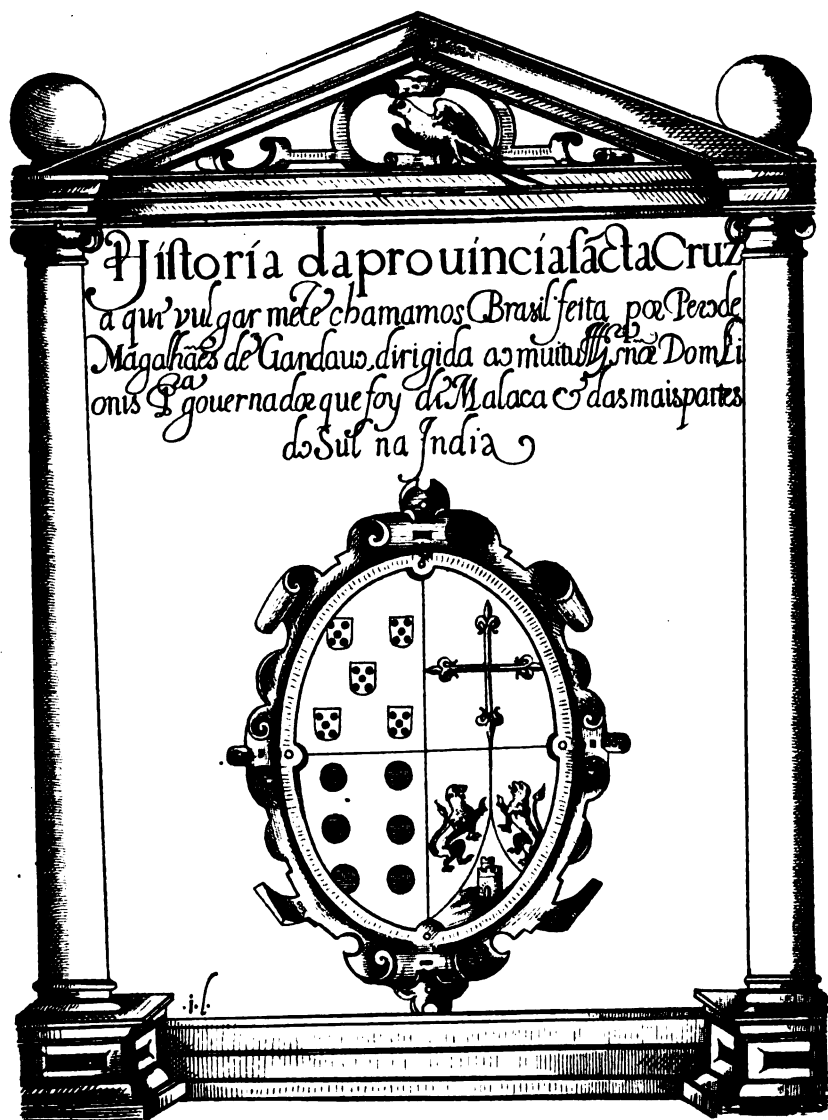 Hiſtoria da prouincia ſãcta Cruz
a qui vulgar mẽte chamamos Brasil feita por Pero de
Magalhães de Gandauo, dirigida ao muito Illsñor Dom Li
onis Pra gouernador que foy de Malaca & das mais partes
do Sul na India
.i.l.